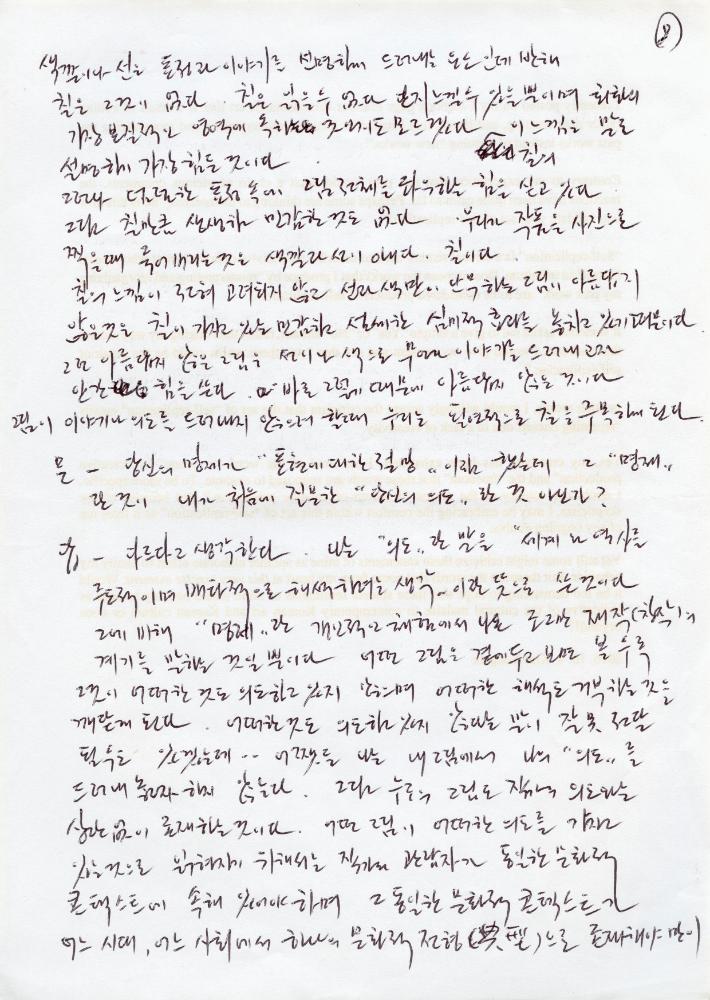 8
색깔이나 선은 표정과 이야기를 선명하게 드러내는 듯도 한데 반해
칠은 그것이 없다 칠은 읽을 수 없다 단지 느낄 수 있을 뿐이며 회화의
가장 본질적인 영역에 속하는 것인지도 모르겠다 이 느낌을 말로
설명하기 가장 힘든 것이다 칠의
그러나 덤덤한 표정 속에 그림 전체를 좌우하는 힘을 싣고 있다
그림 칠만큼 생생하고 민감한 것도 없다 우리가 작품을 사진으로
찍을 때 죽어버리는 것은 색깔과 선이 아니다. 칠이다
칠의 느낌이 전혀 고려되지 않고 선과 색만이 난무하는 그림이 아름답지
않은 것은 칠이 가지고 있는 민감하고 섬세한 심미적 효과를 놓치고 있기 때문이다
그런 아름답지 않은 그림은 선이나 색으로 무언가 이야기를 드러내고자
안간 힘을 쓴다. 바로 그렇기 때문에 아름답지 않은 것이다
그림이 이야기나 의도를 드러내지 않으려 할 때 우리는 필연적으로 칠을 주목하게 된다.
문 - 당신의 명제가 "표현에 대한 절망"이라 했는데 그 "명제"
란 것이 내가 처음에 질문한 "당신의 의도"란 것 아닌가?
답 - 다르다고 생각한다. 나는 "의도"란 말을 "세계와 역사를
주도적이며 배타적으로 해석하려는 생각"이란 뜻으로 쓴 것이다
그에 비해 "명제"란 개인적인 체험에서 나온 또 하나의 제작(창작)의
계기를 말하는 것일 뿐이다 어떤 그림은 곁에 두고 보면 볼수록
그것이 어떠한 것도 의도하고 있지 않으며 어떠한 해석도 거부하는 것을
깨닫게 된다. 어떠한 것도 의도하고 있지 않다는 말이 잘못 전달
될 수도 있겠는데.. 어쨌든 나는 내 그림에서 나의 "의도"를
드러내 놓고자 하지 않는다. 그리고 누구의 그림도 작가의 의도와는
상관없이 존재하는 것이다. 어떤 그림이 어떠한 의도를 가지고
있는 것으로 읽혀지기 위해서는 작가와 관람자가 동일한 문화적
콘텍스트에 속해 있어야 하며 그 동일한 문화적 콘텍스트가
어느 시대, 어느 사회에서 하나의 문화적 전형(典型)으로 존재해야만이